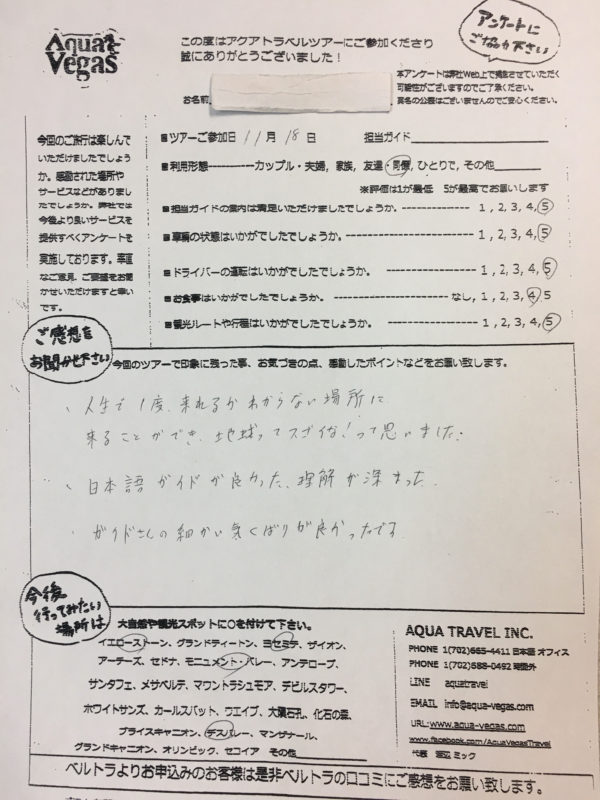 Aqua Vegas
この度はアクアトラベルツアーにご参加くださり
誠にありがとうございました！
アンケートに
ご協力下さい
本アンケートは弊社Web上で掲載させていただく
可能性がございますのでご了承ください。
実名の公表はございませんのでご安心ください。
お名前
今回のご旅行は楽しんで
いただけましたでしょう
か。感動された場所や
サービスなどがありまし
たでしょうか。弊社では
今後より良いサービスを
提供すべくアンケートを
実施しております。率直
なご意見、ご要望をお聞
かせいただけますと幸い
です。
■ツアーご参加日 11月 18日 担当ガイド
■利用形態-----------カップル・夫婦, 家族, 友達・同僚, ひとりで, その他
※評価は1が最低 5が最高でお願いします
■担当ガイドの案内は満足いただけましたでしょうか。---------------- 1, 2, 3, 4, 5
■車輌の状態はいかがでしたでしょうか。---------------- 1, 2, 3, 4, 5
■ドライバーの運転はいかがでしたでしょうか。---------------- 1, 2, 3, 4, 5
■お食事はいかがでしたでしょうか。---------------- なし, 1, 2, 3, 4, 5
■観光ルートや行程はいかがでしたでしょうか。---------------- 1, 2, 3, 4, 5
ご感想を
お聞かせ下さい
今回のツアーで印象に残った事、お気づきの点、感動したポイントなどをお願い致します。
、人生で1度、来れるかわからない場所に
来ることができ、地球ってスゴイな！って思いました。
、日本語ガイドが良かった、理解が深まった
、ガイドさんの細かい気くばりが良かったです
今後
行ってみたい
場所は
大自然や観光スポットに○を付けて下さい。
イエローストーン、グランドティートン、ヨセミテ、ザイオン、
アーチーズ、セドナ、モニュメント・バレー、アンテロープ、
サンタフェ、メサベルテ、マウントラシュモア、デビルスタワー、
ホワイトサンズ、カールスバット、ウエイブ、大隕石孔、化石の森、
ブライスキャニオン、デスバレー、マンザナール、
グランドキャニオン、オリンピック、セコイア その他
AQUA TRAVEL INC.
PHONE 1(702)665-4411 日本語 オフィス
PHONE 1(702)688-0492 時間外
LINE aquatravel
EMAIL info@aqua-vegas.com
URL:www.aqua-vegas.com
www.facebook.com/AquaVegasTravel
代表 渡辺 ミック
ベルトラよりお申込みのお客様は是非ベルトラの口コミにご感想をお願い致します。